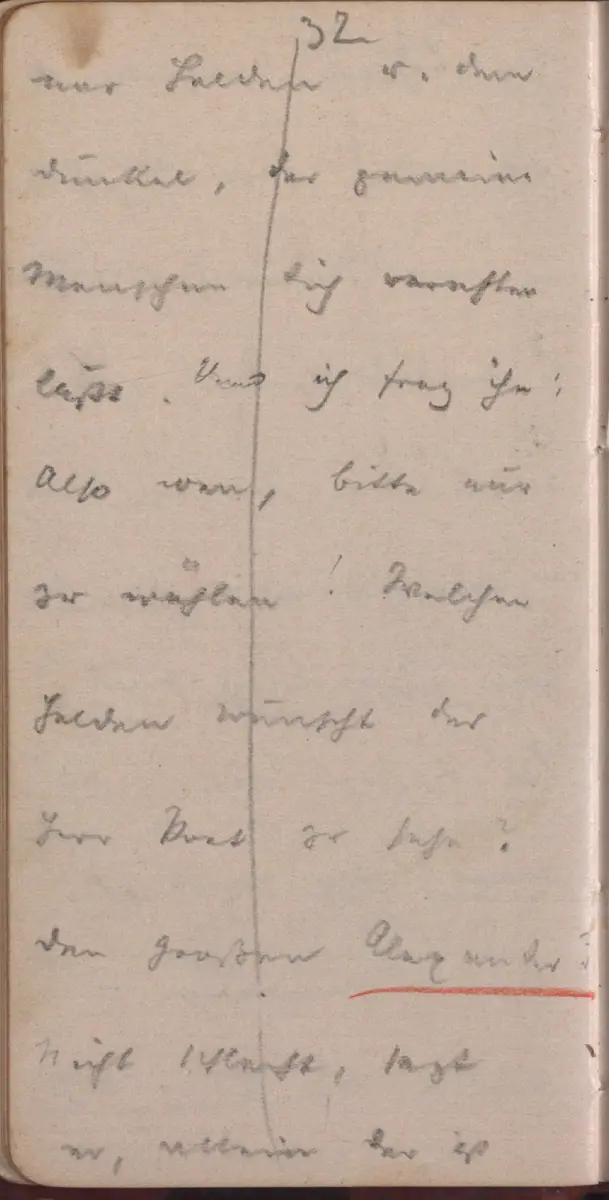 32
vor Helden u. dem
Dünkel, der gemeine
Menschen dich verachten
läßt. Und ich frag ihn:
Also wen, bitte nur
zu wählen! Welchen
Helden wünscht der
Herr Poet zu sehn?
den großen Alexander?
Nicht schlecht, sagt
er, allein der ist